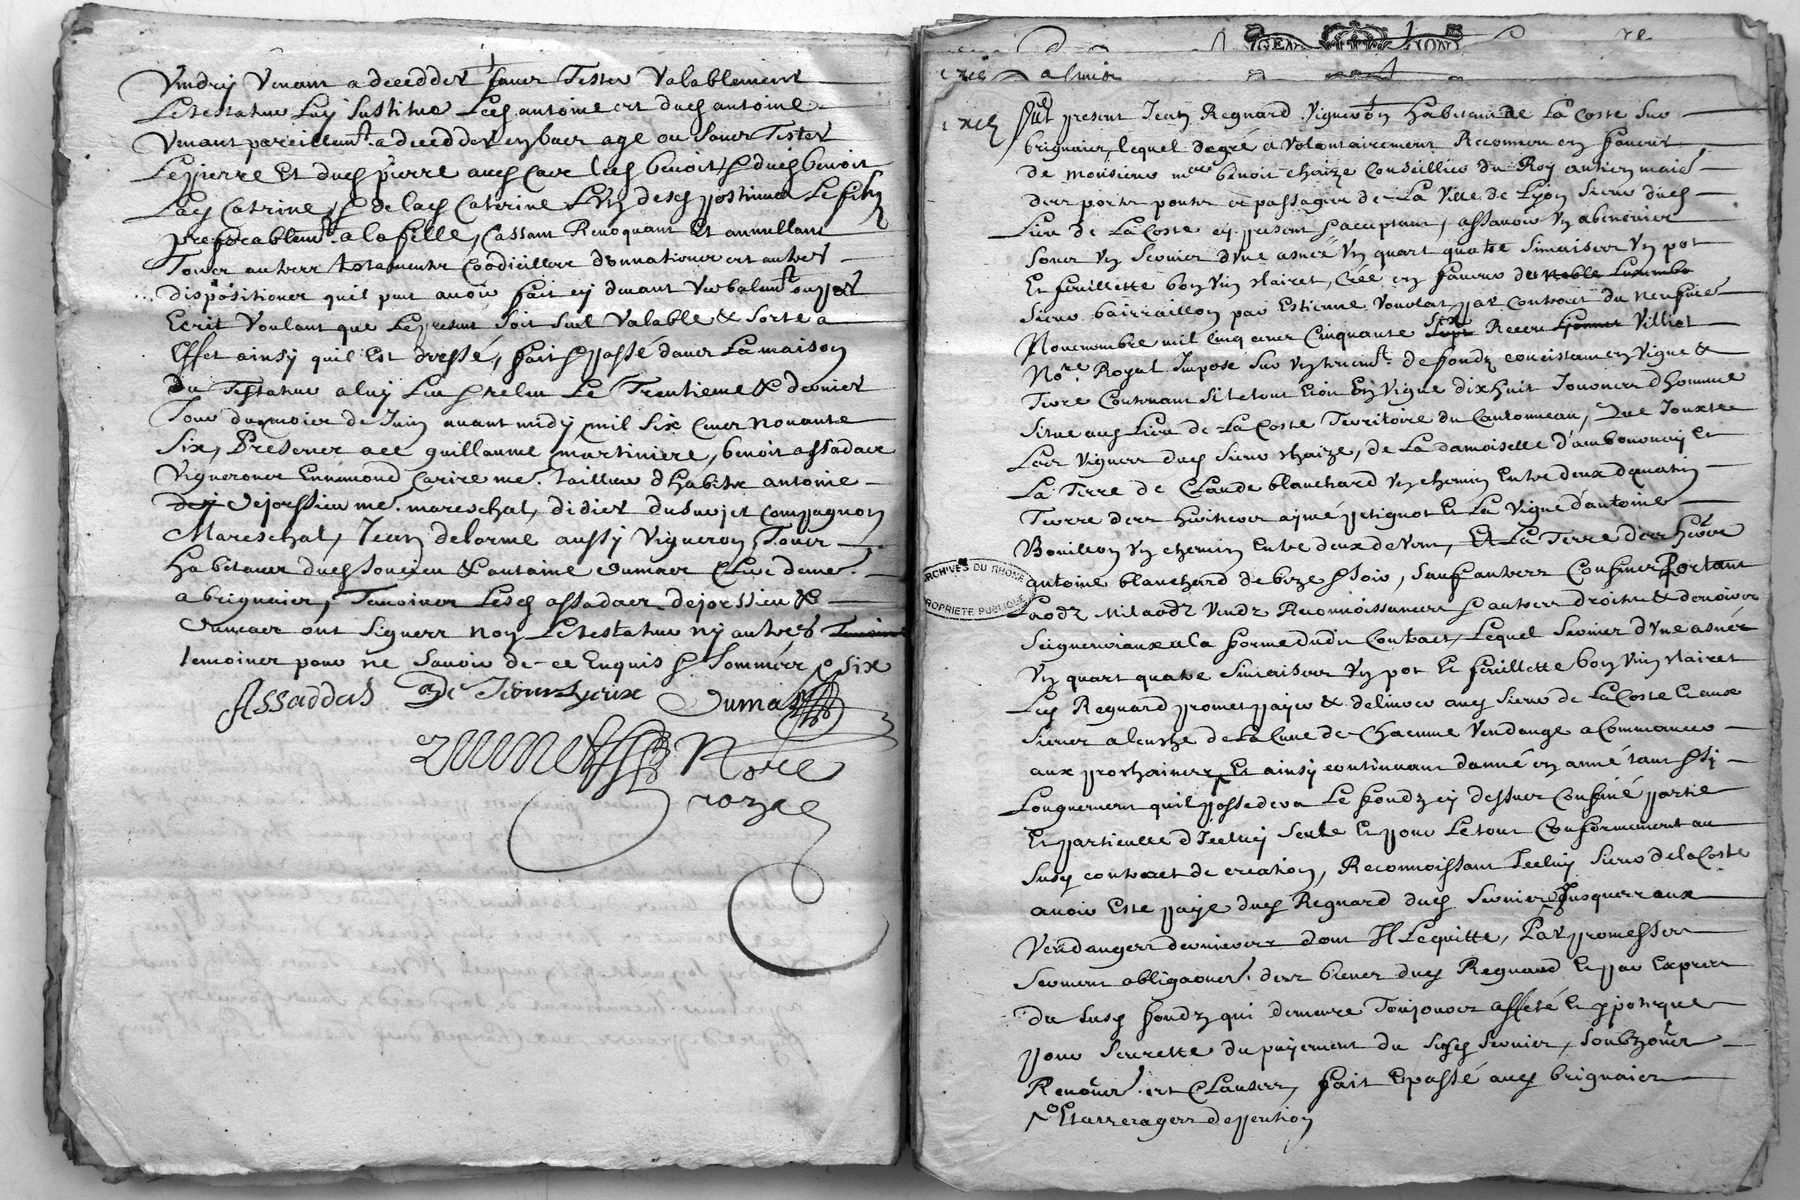 Vindry Venant a decedder sans Tester Valablement
Letestateur luy Sustitue Led. antoine et dud. antoine
Venant pareillemt. a decedder en bas age ou sans Tester
Led pierre Et dud pierre aud. cas led benoit & dud benoit
Lad Catrine, & de lad Caterine L'un desd posthumes Le fils
preferablemt. a la fille, Cassant Revoquant Et annullant
Tous autres testaments Coodicilles donnations et autres
dispositions quil peut avoir fait cy devant Verbalemt. ou par
Ecrit Voulant que Le present Soit Seul Valable & Sorte a
Effet ainsy quil Est dressé, fait & passé dans La maison
du Testateur a luy Leu & releu Le Trentieme & dernier
Jour du mois de Juin avant midy mil Six Cens Nonante
Six, Presens ace guillaume martiniere, benoit assadas
Vignerons Ennimond Carire me. tailleur d'habits antoine
dejorssieu me. mareschal, didier dusurjet compagnon
Mareschal, Jean delorme aussy Vigneron Tous
habitans dud Soucieu & antoine dumas Clerc deme.
a brignais, Temoins Lesd assadas dejorssieu &
dumas ont Signes Non Letestateur ny autres
temoins pour ne Savoir de ce Enquis & Sommés
Assaddas De Jeourssieux Dumas
Nore
Crozel
GEN LION
Fut present Jean Regnard Vigneron habitant de La Coste Sur
brignais, lequel de gré a Volontairement Reconneu en faveur
de monsieur me benoit Chaize Conseiller du Roy antien maitre
des ports ponts et passages de La Ville de Lyon Sieur dud
Lieu de La Coste cy present & acceptant, assavoir un abenevis
Sous un Servis d'Une asnée un quart quatre Simaises un pot
Et feuillette bon Vin Clairet, Créé en faveur de Noble
Sieur bairaillon par Estienne Vouolat par Contract du neufvie
Novembre mil Cinq cens Cinquante Six Receu Villiot
Nore. Royal Imposé Sur un tenemt. de fondz concistant en Vigne &
Terre Contenant Si le tout Etoit En Vigne dixhuit Journées d'homme
Situé aud Lieu de La Coste Territoire du Cantonneau, que Jouxte
Les Vignes dud Sieur Chaize, de La damoiselle d'ambournay Et
La Terre de Claude blanchard un chemin Entre deux de matin
Terre des hoirs aymé petignot Et La Vigne d'antoine
Bouillon un chemin Entre deux de Vent, Et La Terre des hers
antoine blanchard de bize & Soir, Sauf autres Confins Portant
Laodz Milaodz Vendz Reconnoissances & autres droits & devoirs
Seigneuriaux a la forme dudit Contract, Lequel Servis d'Une asnée
un quart quatre Simaises un pot Et feuillette bon Vin Clairet
Led Regnard promet payer & delivrer aud Sieur de La Coste Et aux
Siens a leusze de La Cuve de Chacune Vendange a Commancer
aux prochaines, Et ainsy continuant dannée en année tant & Sy
Longuement quil possedera Le fondz cy dessus Confiné partie
Et particulle d'Icelluy Seule Et pour Le tout Conformement au
Susd contract de creation, Reconnoissant Icelluy Sieur de la Coste
avoir Este payé dud Regnard dud Servis Jusques aux
Vendanges dernieres dont Il Le quitte, Par promesses
Serment obligaons. des biens dud Regnard Et par Exprès
du Susd fondz qui demeure Toujours affeté Et ypotequé
pour Seurette du payement du Susd Servis, Soubzons
Renons. et Clauses, fait Et passé aud brignais
Et arrerages de pention
ARCHIVES DU RHONE
PROPRIETE PUBLIQUE